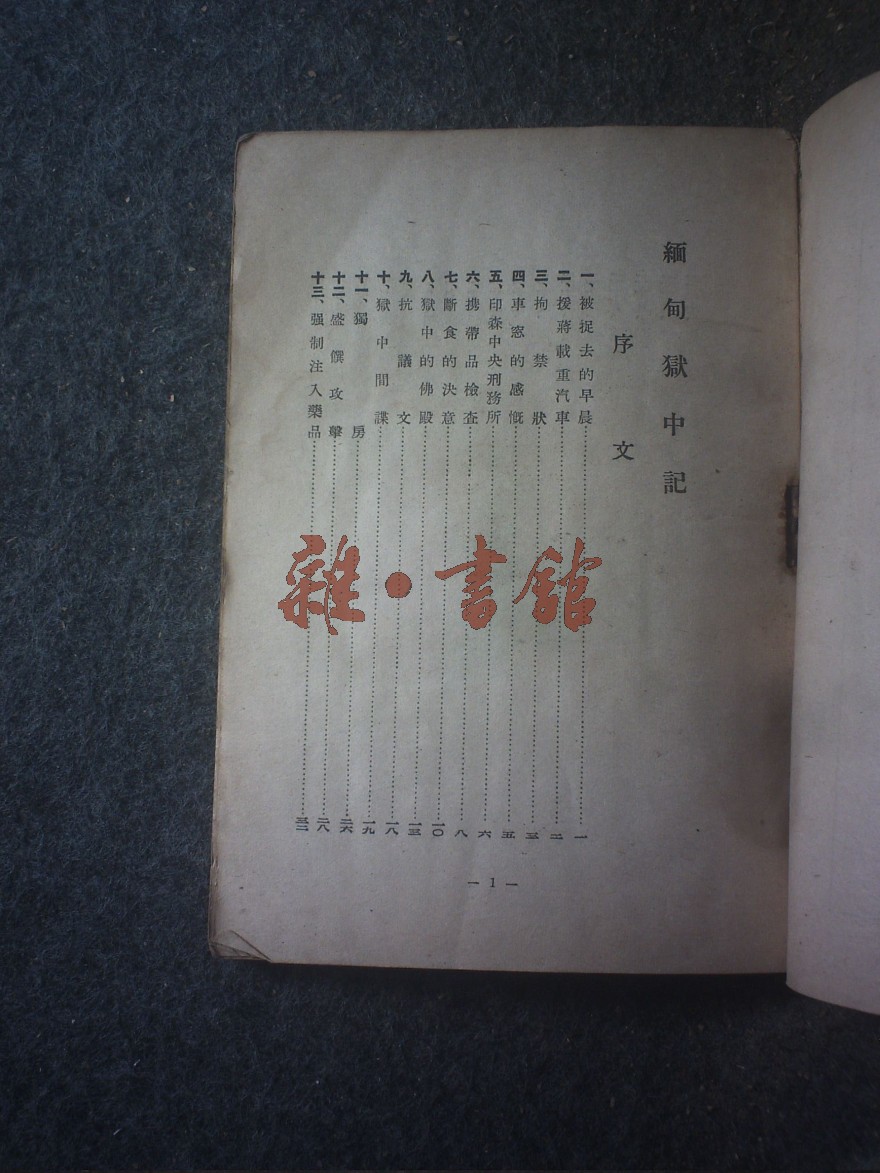 緬甸獄中記
序文
一、被捉去的早晨 一
二、援蔣載重汽車 二
三、拘禁狀 三
四、車窓的感慨 五
五、印森中央刑務所 六
六、携帶品檢查 八
七、斷食的決意 一〇
八、獄中的佛殿 一三
九、抗議文 一八
十、獄中間諜 一九
十一、獨房 二六
十二、盛饌攻擊 二八
十三、强制注入藥品 三二
— 1 —
雜·書館